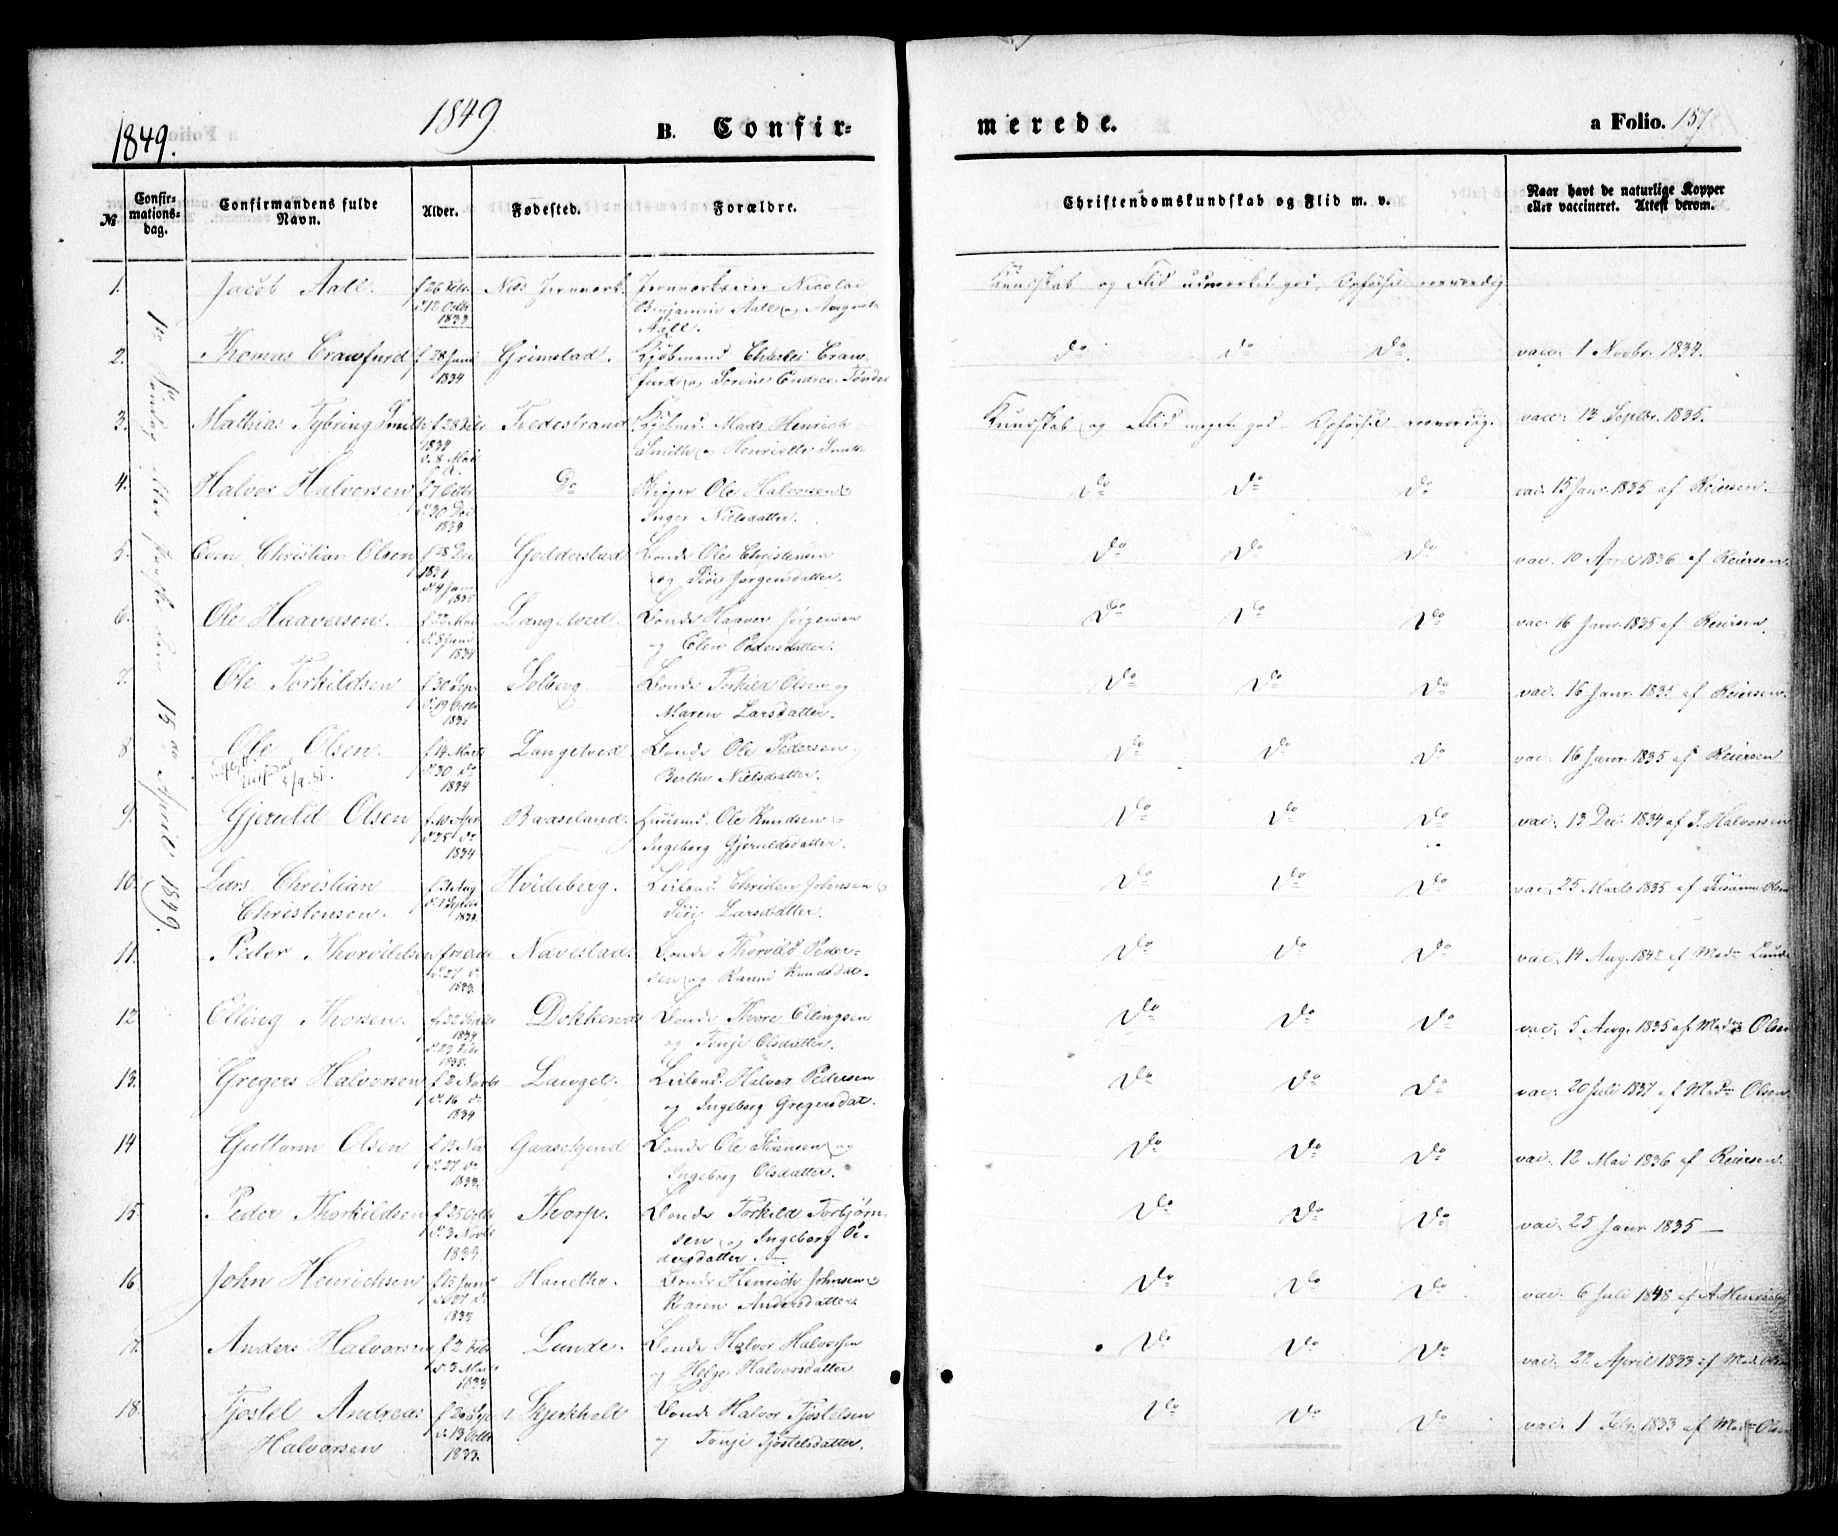 1849.
1849
B. Confir-
merede.
a Folio. 157
№
Confir-
mations-
dag.
Confirmandens fulde
Navn.
Alder.
Fødested.
Forældre.
Christendomskundskab og Flid m. v.
Naar havt de naturlige Kopper
eller vaccineret. Attest derom.
15 April 1849.
1. Jacob Aall. Næs Jernverk. Jernverkseier Nicolai
f 26 Febr. 12 Octbr 1833 Benjamin Aall og
Aall.
Kundskab og Flid udmærket god, Opførsel
2. Thomas Crawfurd f 28 Juni 1834 Grimstad. Kjøbmand Charles Craw-
furd og Sorine Endree Tønder
Do Do Do vacc. 1 Novbr. 1834.
3. Mathias Tybring Smith f 28 1834 Tvedestrand Mads Henrich
d. 8 Mai Smith og Henriette Smith
Kundskab og Flid meget god Opførsel vacc. 13 Septbr. 1835.
4. Halvor Halvorsen f 7 Octbr Do Ole Halvorsen
d. 30 Dec 1834 Inger Nielsdatter.
Do Do Do vac. 15 Janr. 1835 af Reiersen.
5. Even Christian Olsen f 28 Dec Godderstad Bonde Ole Christensen
d. 4 Janr 1835 og Siri Jørgensdatter.
Do Do Do vac. 10 April 1836 af Reiersen
6. Ole Haaversen. f 22 Mai Langelved. Bonde Haaver Jørgensen
d. 8 Juni 1834 og Elen Pedersdatter.
Do Do Do vac. 16 Janr. 1835 af Reiersen.
7. Ole Torkildsen f 30 Sept Solberg. Bonde Torkild Olsen og
d. 19 Octbr Maren Larsdatter.
Do Do Do vac. 16 Janr. 1835 af Reiersen.
8 Ole Olsen. f 14 Marts Langelved Bonde Ole Pedersen
d. 30 do 1834 Berthe Nielsdatter.
Do Do Do vac. 16 Janr. 1835 af Reiersen
9. Gjeruld Olsen f. 10 Apr Baaseland. Huusmd. Ole Knudsen
d. 25 do 1834 Ingeborg Gjeruldsdatter.
Do Do Do vac. 13 Dec. 1834 af J. Halvorsen
10. Lars Christian Hvideberg. Leilend. Christen Johnsen
Christensen. Siri Larsdatter.
Do Do Do vac. 25 Marts 1835 af Susanne Olsen
11. Peder Thorvildsen Navestad. Bonde Thorvild Peder-
d. 27 do 1833 sen og Knudsdat.
Do Do Do vac. 14 Aug. 1842 af Mdm Lunde
12 Elling Thorsen. 1834 Dokkenæs Bonde Thore Ellingsen
1835. og Tonje Olsdatter.
Do Do Do vac. 5 Aug. 1835 af Madm Olsen
13. Gregers Halvorsen f 2 Novbr Langel. Leilend. Halvor Pedersen
d. 16 do 1834 og Ingeborg Gregersdat.
Do Do Do vac. 20 Juli 1837 af Madm Olsen
14 Guttorm Olsen f 15 Nov Gaasekjend Bonde Ole Simensen og
d. 27 do 1833. Ingeborg Olsdatter.
Do Do Do vac. 12 Mai 1836 af Reiersen.
15. Peder Thorkildsen f 25 Octbr Thorp. Bonde Torkild Torbjørn-
d. 3 Novbr 1833. sen og Ingeborg Pe-
dersdatter.
Do Do Do vac. 25 Janr 1835 —
16. John Henrichsen f 15 Juni Hanetho. Bonde Henrich Johnsen
d. 27 do 1833 Karen Andersdatter
Do Do Do vac. 6 Juli 1848 af A.
17. Anders Halvorsen f 2 Febr Lunde. Bonde Halvor Halvorsen
d. 3 1833 og Helje Halvorsdatter
Do Do Do vac. 22 April 1833 af Mad. Olsen
18. Tjostel Andreas f 20 Skjerkholt Bonde Halvor Tjostelsen
Halvorsen d. 13 Octbr 1833. og Tonje Tjostelsdatter.
Do Do Do vac. 1 Febr. 1833 af Madm Olsen